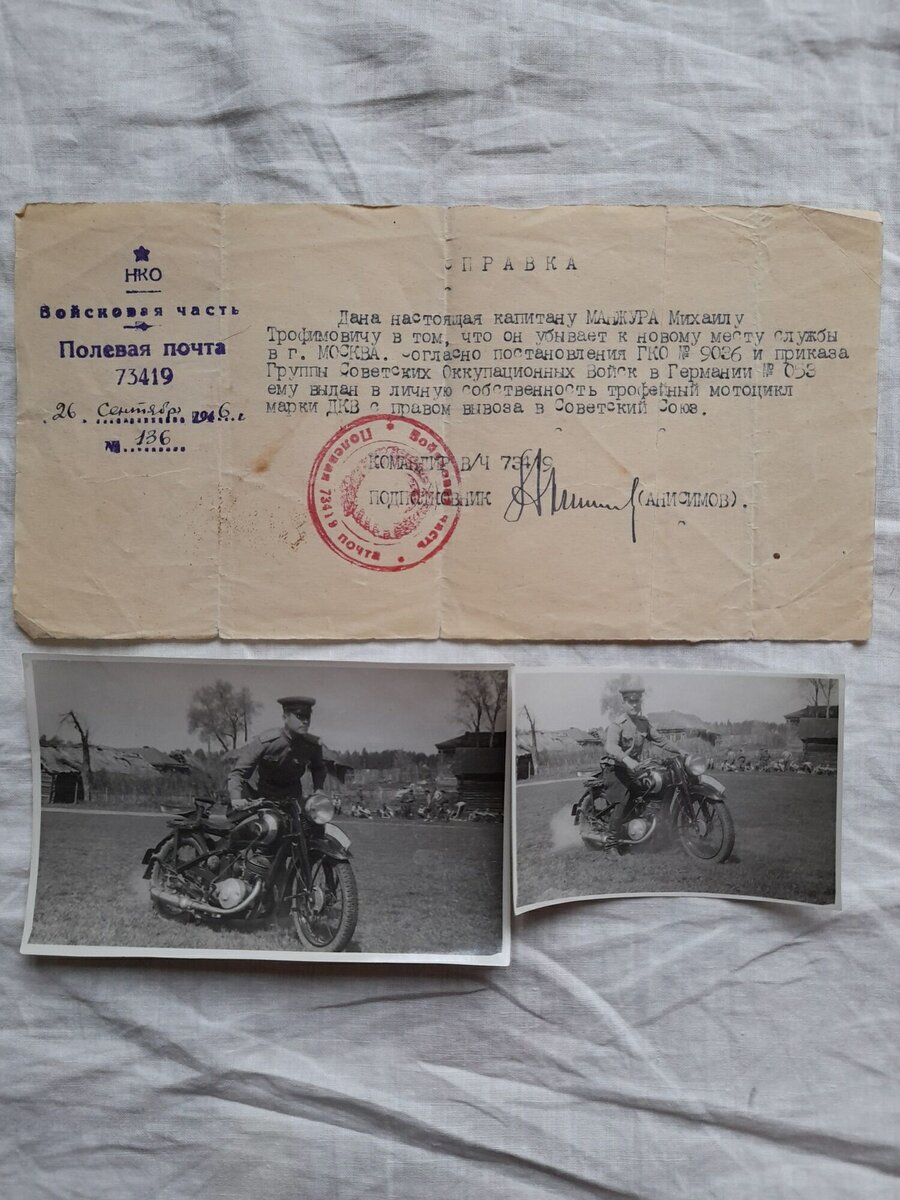 НКО
Войсковая часть
Полевая почта
73419
"26" Сентябр 1946 г.
№ 136
СПРАВКА
Дана настоящая капитану МАНЖУРА Михаилу
Трофимовичу в том, что он убывает к новому месту службы
в г. МОСКВА. Согласно постановления ГКО № 9036 и приказа
Группы Советских Оккупационных Войск в Германии № 053
ему выдан в личную собственность трофейный мотоцикл
марки ДКВ с правом вывоза в Советский Союз.
КОМАНДИР В/Ч 73419
ПОДПОЛКОВНИК (АНИСИМОВ).
Войсковая часть • Полевая 73419 почта •